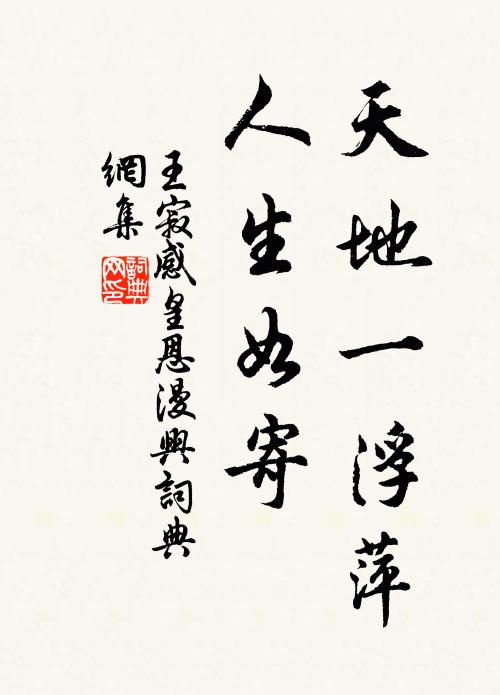 天地一浮萍
人生如寄
王寂感皇恩漫興詞典
網集
詞典網印